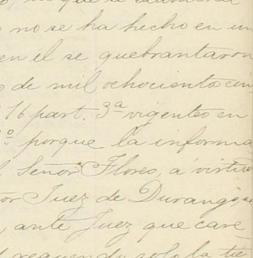 no se ha hecho en un
en él se quebrantaron
de mil ochociento cin
16 part. 3ª vigentes en
porque la informa
Señor Flores, a virtu
or Juez de Durang
, ante Juez que care